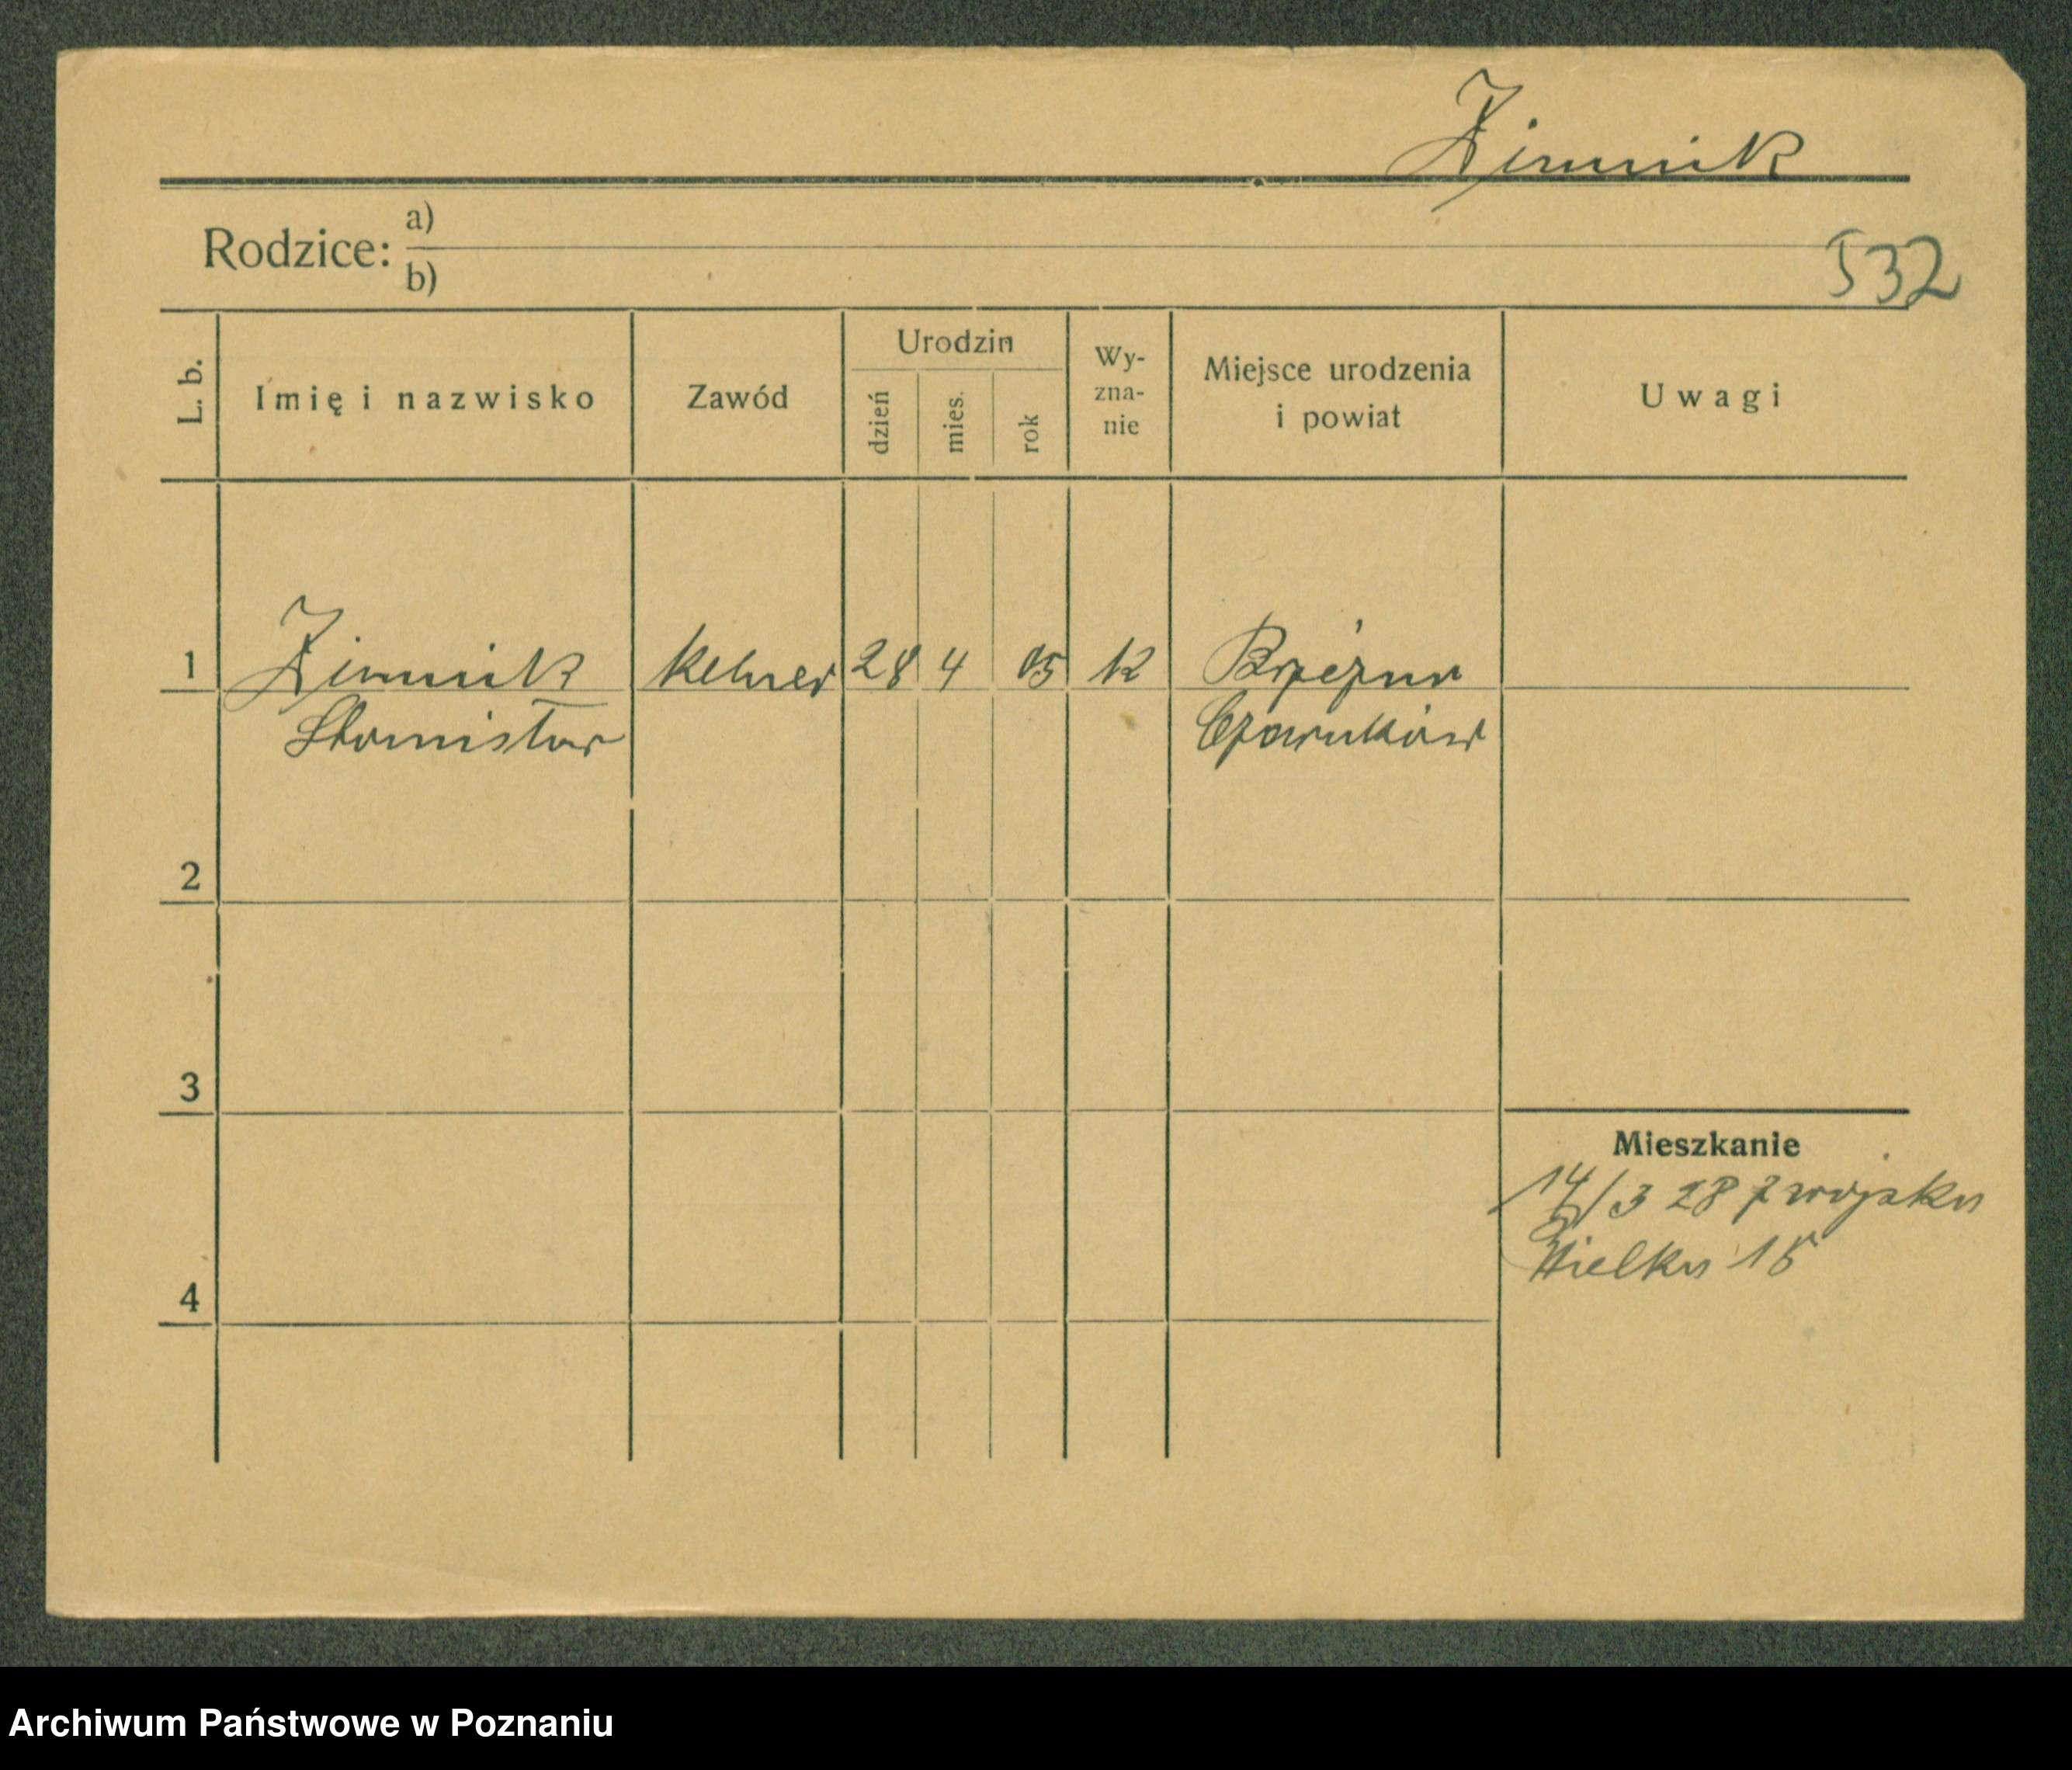 Zimnik
Rodzice: a)
b)
532
L. b. Imię i nazwisko Zawód Urodzin dzień mies. rok Wy-zna-nie Miejsce urodzenia i powiat Uwagi
1 Zimnik kelner 28 4 05 k Brzeźno
Stanisław Czarnków
2
3
Mieszkanie
14/3 28 z wojska
Wielka 15
4
Archiwum Państwowe w Poznaniu